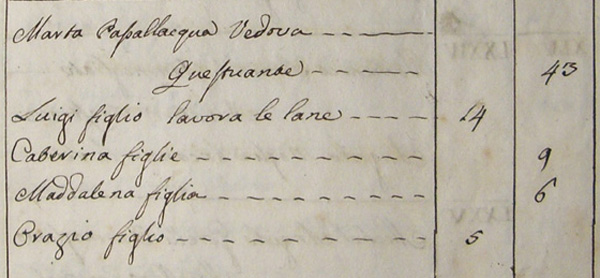 Marta Passallacqua Vedova
Questuante 43
Luigi figlio lavora le lane 14
Caterina figlie 9
Maddalena figlia 6
Orazio figlio 5